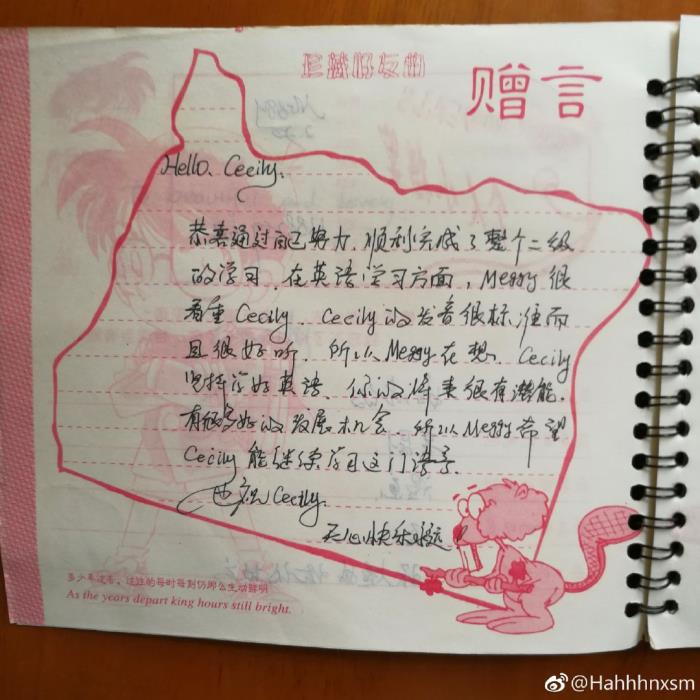 珍藏好友册
赠言
Hello. Cecily.
恭喜通过自己努力，顺利完成了整个二级
的学习，在英语学习方面，Merry很
看重Cecily、Cecily的发音很标准而
且很好听，所以Merry在想，Cecily
坚持学好英语，你的将来很有潜能，
有很多好的发展机会，所以Merry希望
Cecily能继续学习这门语言.
也祝Cecily.
天心快乐永远！
多少年过去，过往的每时每刻仍那么生动鲜明
As the years depart king hours still bright.
@Hahhhnxsm